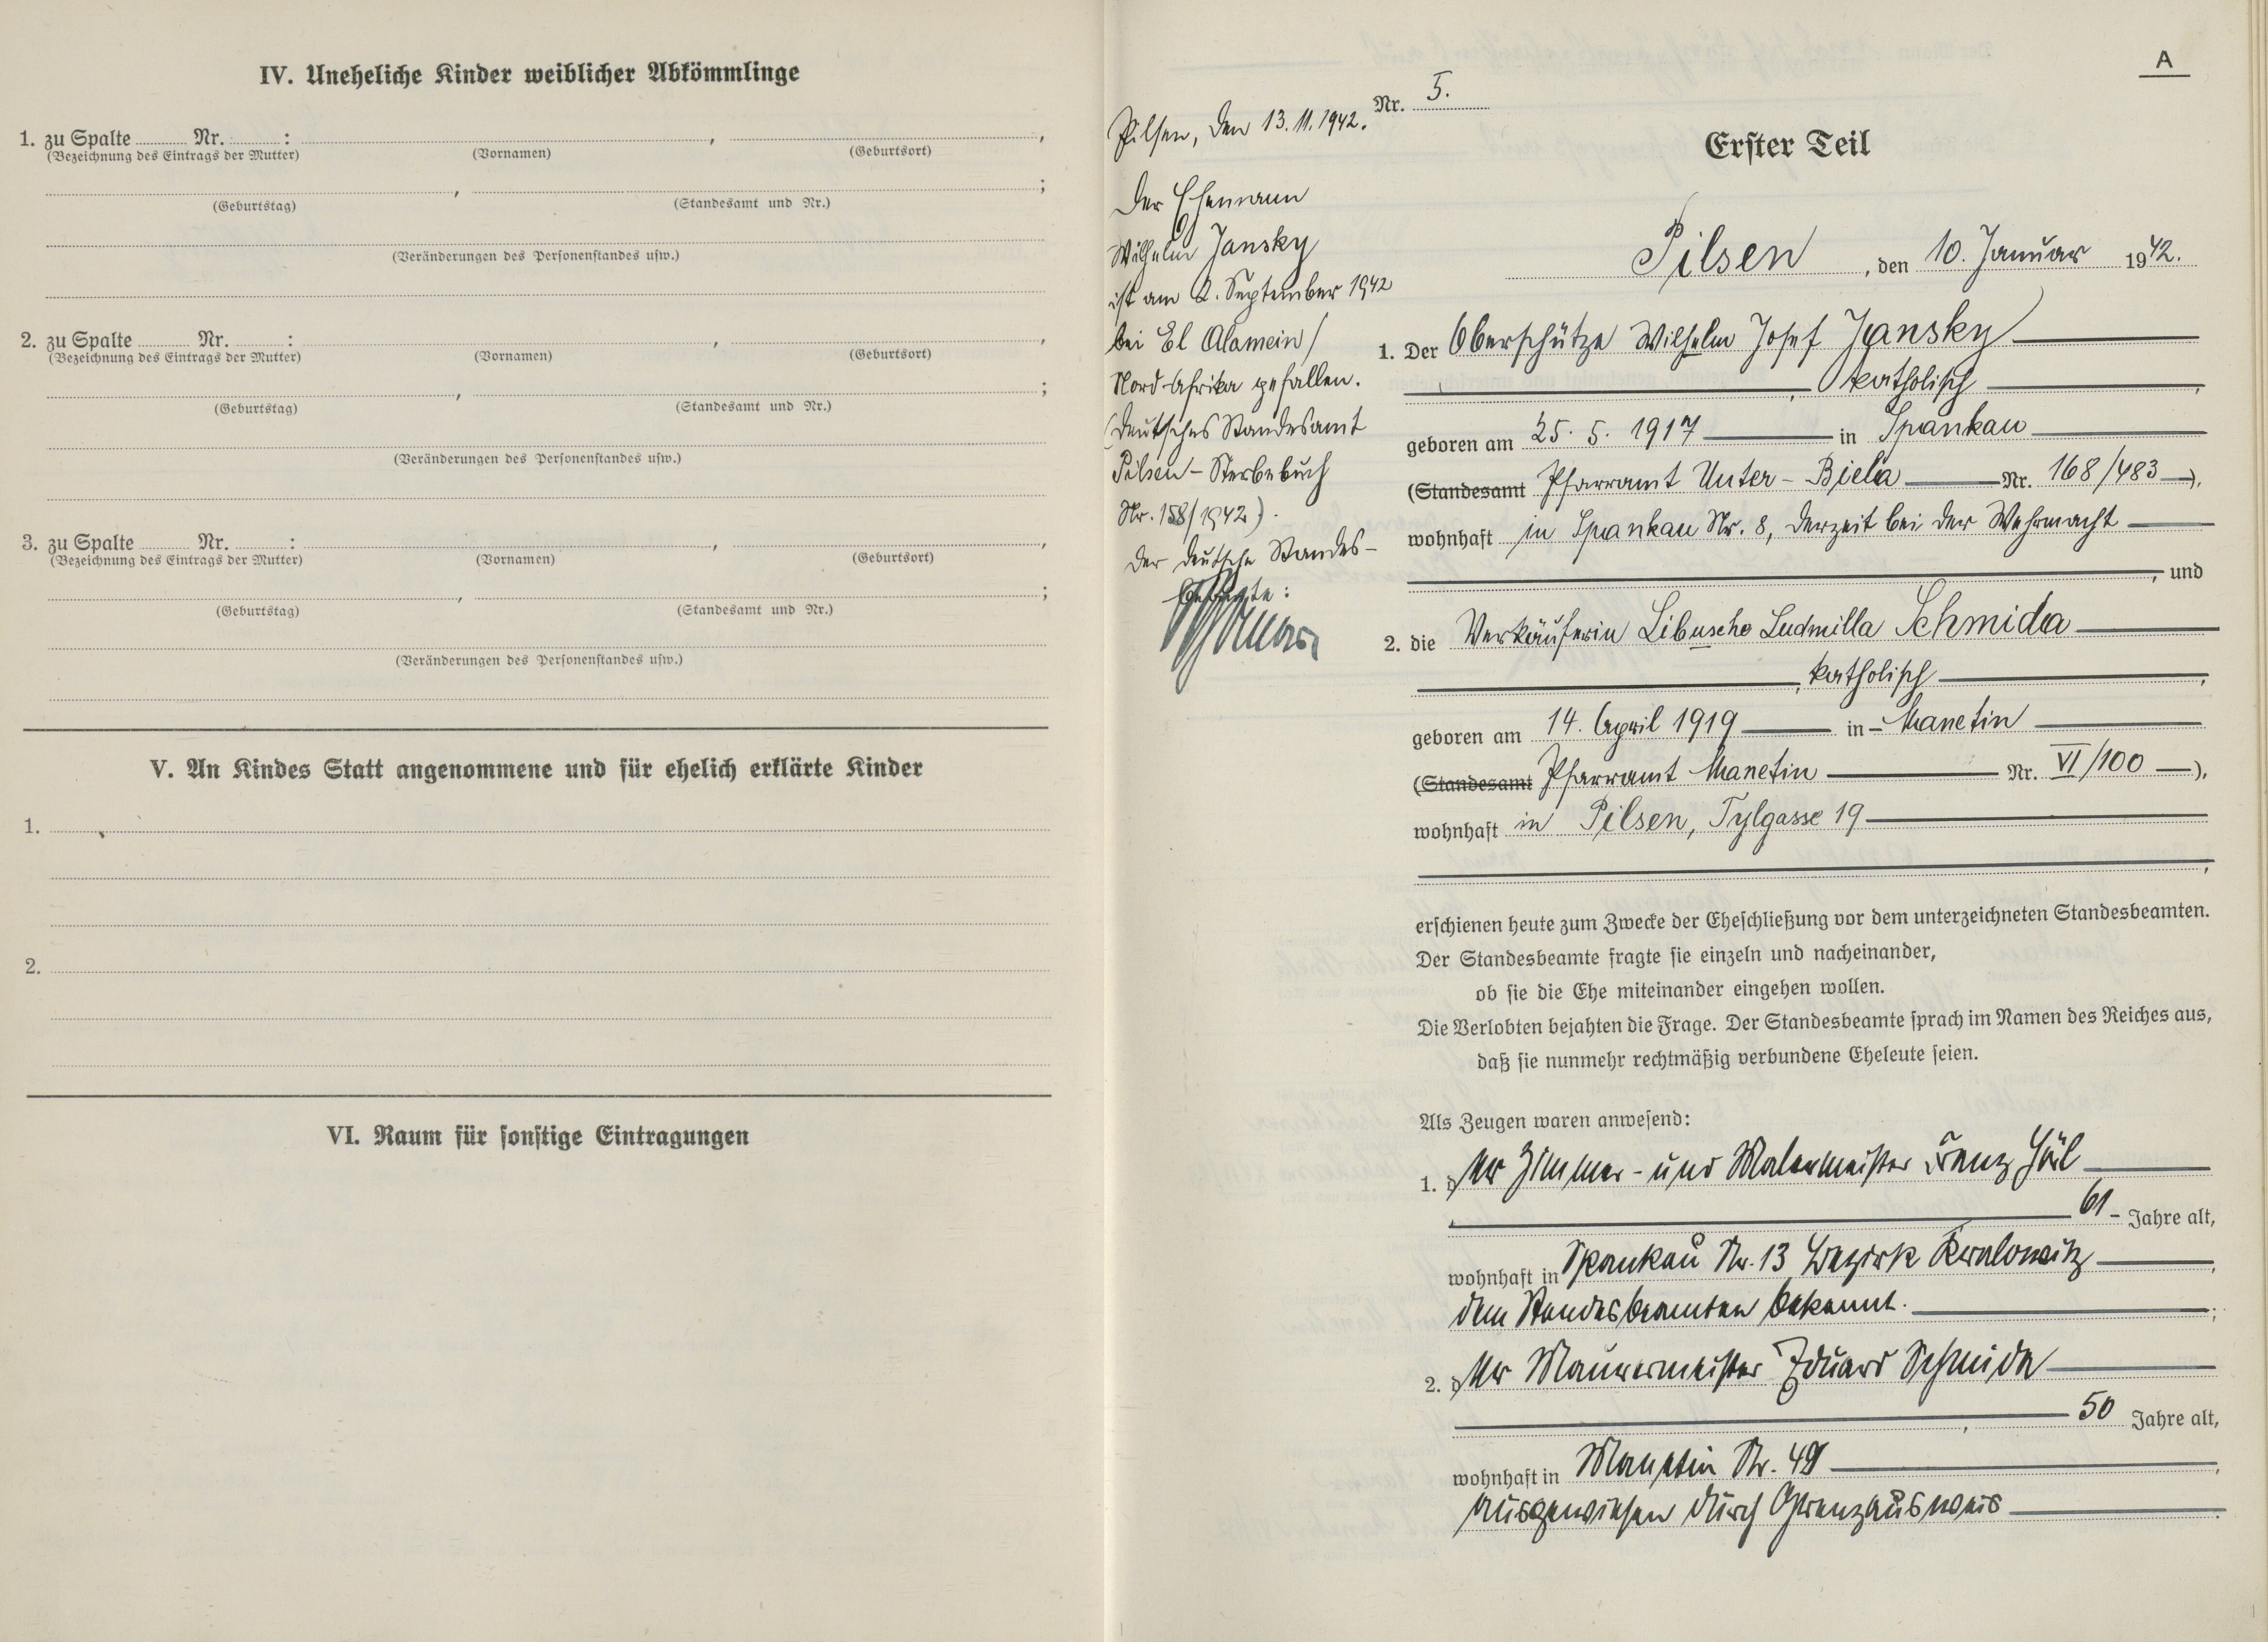 IV. Uneheliche Kinder weiblicher Abkömmlinge
1. zu Spalte Nr. : , ,
(Bezeichnung des Eintrags der Mutter) (Vornamen) (Geburtsort)
, ;
(Geburtstag) (Standesamt und Nr.)
(Veränderungen des Personenstandes usw.)
2. zu Spalte Nr. : , ,
(Bezeichnung des Eintrags der Mutter) (Vornamen) (Geburtsort)
, ;
(Geburtstag) (Standesamt und Nr.)
(Veränderungen des Personenstandes usw.)
3. zu Spalte Nr. : , ,
(Bezeichnung des Eintrags der Mutter) (Vornamen) (Geburtsort)
, ;
(Geburtstag) (Standesamt und Nr.)
(Veränderungen des Personenstandes usw.)
V. An Kindes Statt angenommene und für ehelich erklärte Kinder
1.
2.
VI. Raum für sonstige Eintragungen
A
Nr. 5.
Pilsen, den 13. 11. 1942.
Der Ehemann
Wilhelm Jansky
ist am 2. September 1942
bei El Alamein/
Nord-Afrika gefallen.
(Deutsches Standesamt
Pilsen – Sterbebuch
Nr. 158/1942).
Der deutsche Standes-
beamte:
Erster Teil
Pilsen, den 10. Januar 1942.
1. Der Oberschütze Wilhelm Josef Jansky
, katholisch ,
geboren am 25. 5. 1917 in Spankau
(Standesamt Pfarramt Unter-Biela Nr. 168/483),
wohnhaft in Spankau Nr. 8, derzeit bei der Wehrmacht
, und
2. die Verkäuferin Libusche Ludmilla Schmida
, katholisch ,
geboren am 14. April 1919 in Manetin
(Standesamt Pfarramt Manetin Nr. VI/100),
wohnhaft in Pilsen, Tylgasse 19
,
erschienen heute zum Zwecke der Eheschließung vor dem unterzeichneten Standesbeamten.
Der Standesbeamte fragte sie einzeln und nacheinander,
ob sie die Ehe miteinander eingehen wollen.
Die Verlobten bejahten die Frage. Der Standesbeamte sprach im Namen des Reiches aus,
daß sie nunmehr rechtmäßig verbundene Eheleute seien.
Als Zeugen waren anwesend:
1. der Zimmer- und Malermeister Franz
61 Jahre alt,
wohnhaft in Spankau Nr. 13 Bezirk Kralowitz,
dem Standesbeamten bekannt. ;
2. der Maurermeister Eduard Schmida
, 50 Jahre alt,
wohnhaft in Manetin Nr. 49,
ausgewiesen durch Grenzausweis .